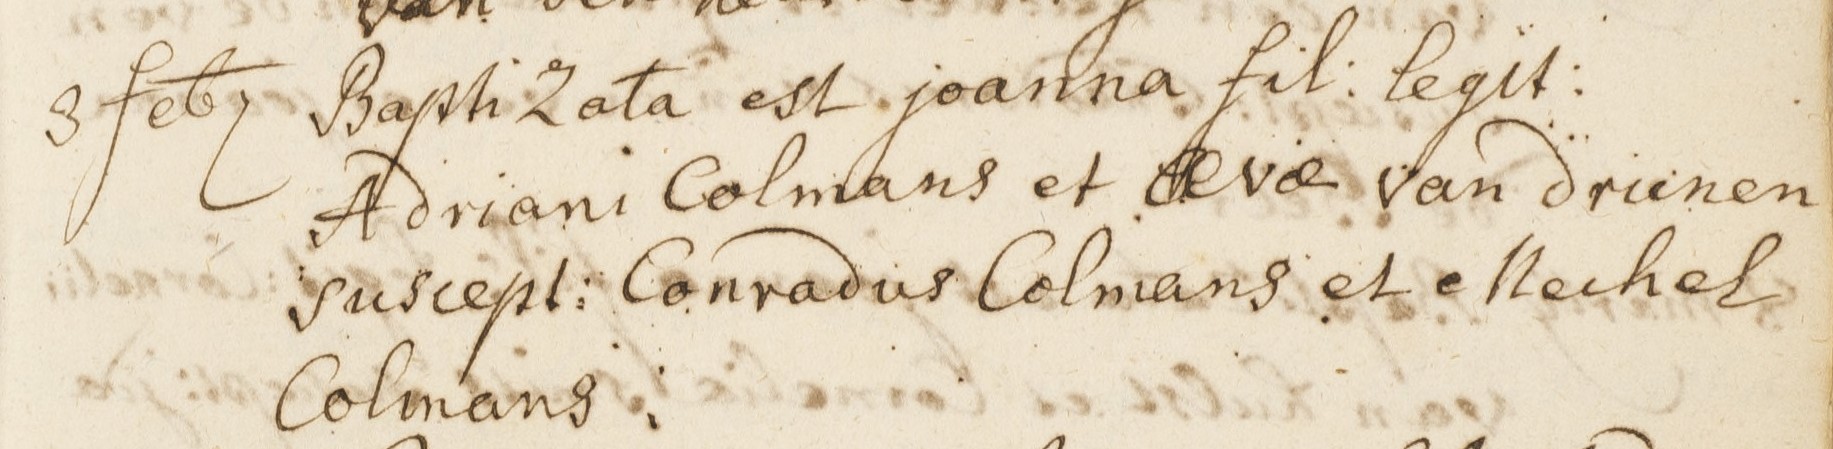 van den
3 feb: Baptizata est joanna fil: legit:
Adriani Colmans et Evæ van drünen
suscept: Conradus Colmans et Mechel
Colmans: